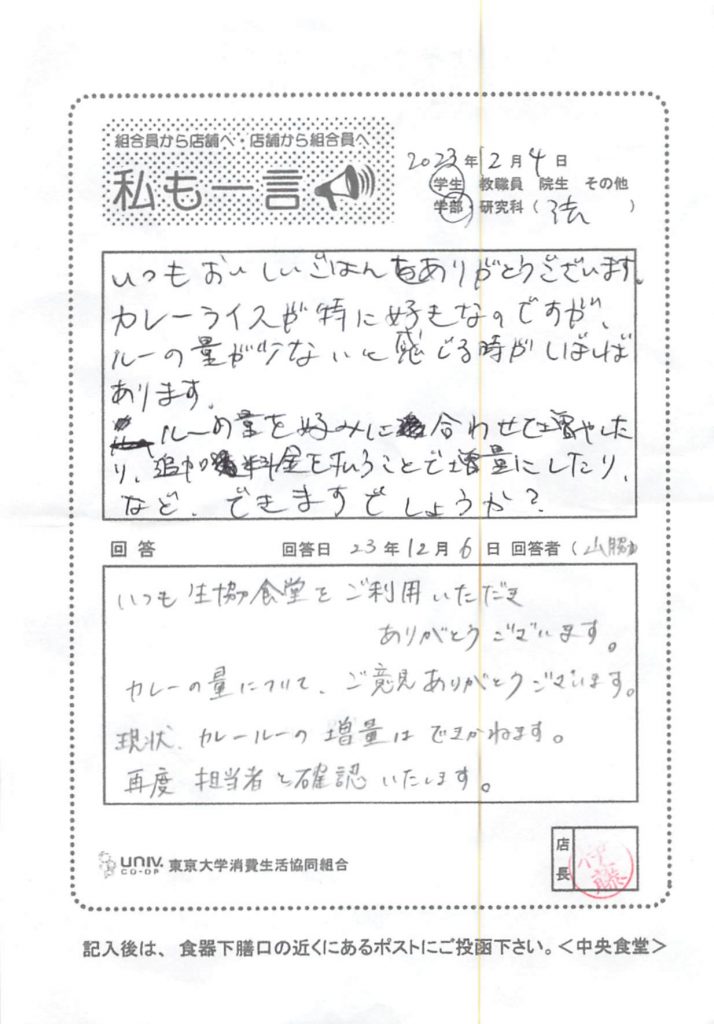 組合員から店舗へ・店舗から組合員へ
私も一言
2023年12月4日
学生 教職員 院生 その他
学部 研究科（法）
いつもおいしいごはんをありがとうございます。
カレーライスが特に好きなのですが、
ルーの量が少ないと感じる時がしばしば
あります。
ルーの量を好みに合わせて増やした
り、追加料金を払うことで増量にしたり、
など、できますでしょうか？
回答 回答日 23年12月6日 回答者（山脇）
いつも生協食堂をご利用いただき
ありがとうございます。
カレーの量について、ご意見ありがとうございます。
現状、カレールーの増量はできかねます。
再度担当者と確認いたします。
UNIV. CO-OP 東京大学消費生活協同組合
店長 伊藤
記入後は、食器下膳口の近くにあるポストにご投函下さい。＜中央食堂＞